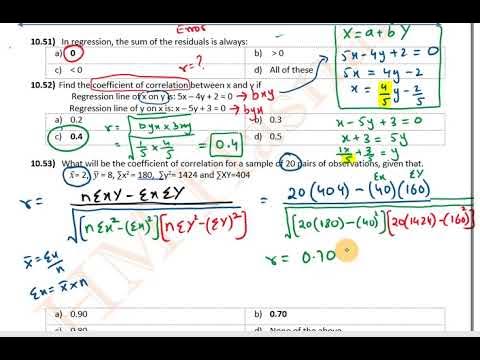 Error
10.51) In regression, the sum of the residuals is always:
a) 0
b) > 0
c) < 0
d) All of these
r = ?
X = a + b Y
5x - 4y + 2 = 0
5x = 4y - 2
x = 4/5 y - 2/5
10.52) Find the coefficient of correlation between x and y if
Regression line of x on y is: 5x – 4y + 2 = 0 → bxy
Regression line of y on x is: x – 5y + 3 = 0 → byx
a) 0.2
b) 0.3
c) 0.4
d) 0.5
r = √byx × bxy
= √1/5 × 4/5 = 0.4
x - 5y + 3 = 0
x + 3 = 5y
1x/5 + 3/5 = y
10.53) What will be the coefficient of correlation for a sample of 20 pairs of observations, given that.
x̄ = 2, ȳ = 8, ∑x² = 180, ∑y² = 1424 and ∑XY=404
r = nΣXY - ΣX ΣY / √[nΣX² - (ΣX)²][nΣY² - (ΣY)²]
Σx ΣY
= 20(404) - (40)(160) / √[20(180) - (40)²][20(1424) - (160)²]
x̄ = Σx/n
Σx = x̄ × n
r = 0.70
a) 0.90
b) 0.70
c) 0.80
d) None of the above